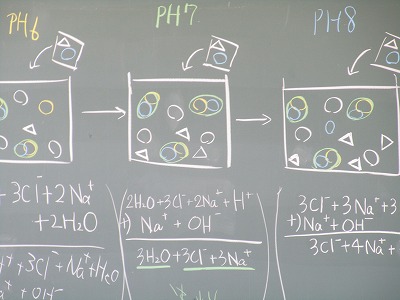 PH6
PH7.
PH8
+ 3Cl⁻ + 2Na⁺
+ 2H₂O
+ 3Cl⁻ + Na⁺ + H₂O
Na⁺ + OH⁻
2H₂O + 3Cl⁻ + 2Na⁺ + H⁺
+) Na⁺ + OH⁻
3H₂O + 3Cl⁻ + 3Na⁺
3Cl⁻ + 3Na⁺ + 3
+) Na⁺ + OH⁻
3Cl⁻ + 4Na⁺ +